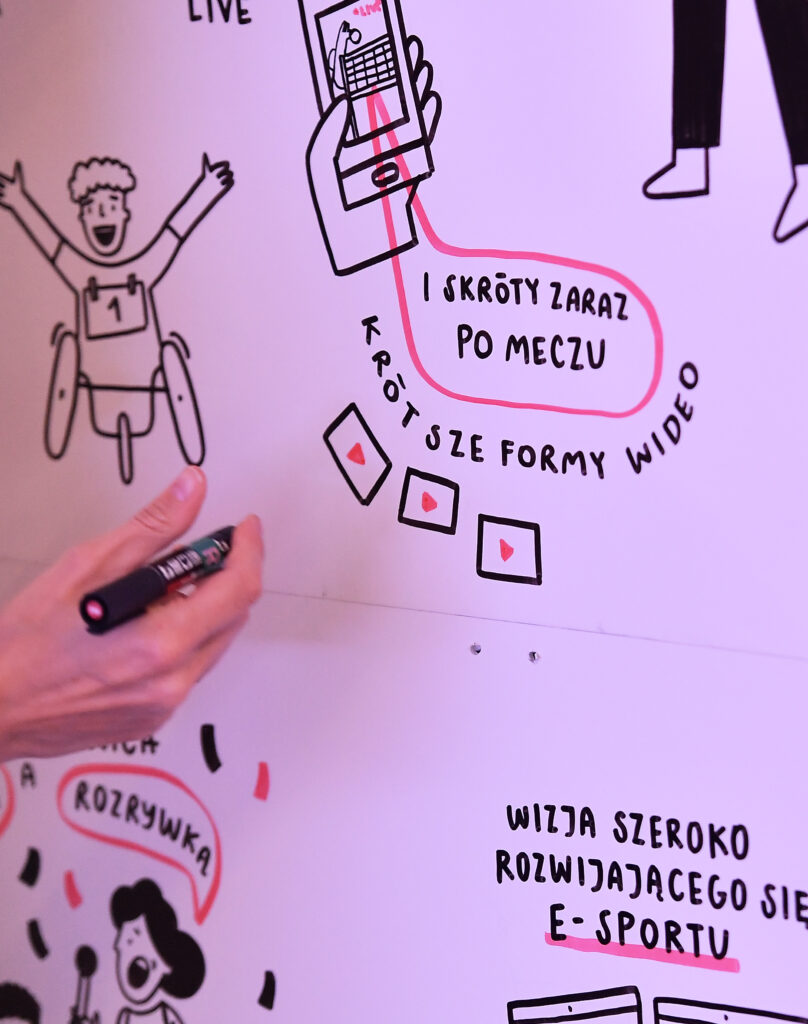 LIVE
LIVE
1
I SKRÓTY ZARAZ
PO MECZU
KRÓTSZE FORMY WIDEO
A
ROZRYWKĄ
WIZJA SZEROKO
ROZWIJAJĄCEGO SIĘ
E-SPORTU